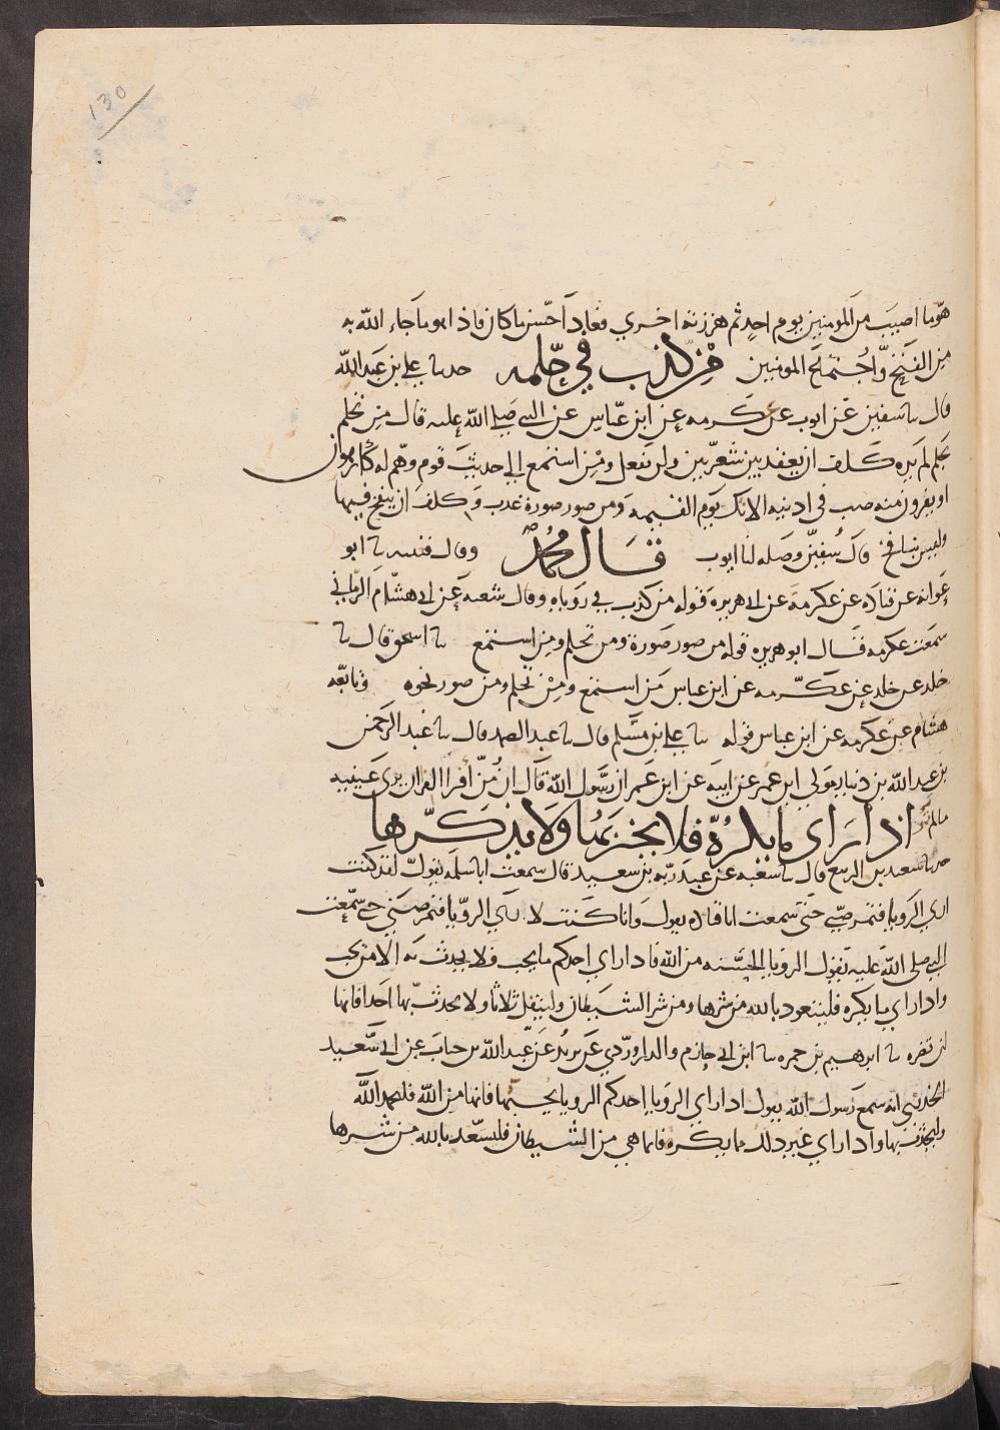 130
هو ما اصيب من المومنين يوم احد ثم هززته اخري فعاد احسن ما كان فاذا هو ما جاء الله به
من الفتح واجتماع المومنين من كذب في حلمه حدثنا علي بن عبد الله
قال نا سفين عن ايوب عن عكرمه عن ابن عباس عن النبي صلي الله عليه قال من تحلم
بحلم لم يره كلف ان يعقد بين شعرتين ولن يفعل ومن استمع الي حديث قوم وهم له كارهون
او يفرون منه صب في اذنيه الانك يوم القيمه ومن صور صورة عذب وكلف ان ينفخ فيها
وليس بنافخ قال سفين وصله لنا ايوب قال محمد وقال قتيبه نا ابو
عوانه عن قتاده عن عكرمه عن ابي هريره قوله من كذب في روياه وقال شعبه عن ابي هشام الرماني
سمعت عكرمه قال ابو هريره قوله من صور صورة ومن تحلم ومن استمع نا اسحق قال نا
خلد عن خلد عن عكرمه عن ابن عباس من استمع ومن تحلم ومن صور نحوه وتابعه
هشام عن عكرمه عن ابن عباس قوله نا علي بن مسلم قال نا عبد الصمد قال نا عبد الرحمن
بن عبد الله بن دينار مولي ابن عمر عن ابيه عن ابن عمر ان رسول الله قال ان من افرا الفرا ان يري عينيه
مالم تر اذا راي ما يكره فلا يخبر بها ولا يذكرها
حدثنا سعيد بن الربيع قال نا شعبه عن عبد ربه بن سعيد قال سمعت ابا سلمه يقول لقد كنت
اري الرويا فتمرضني حتي سمعت ابا قتاده يقول وانا كنت لاري الرويا فتمرضني حتي سمعت
النبي صلي الله عليه يقول الرويا الحسنه من الله فاذا راي احدكم ما يحب فلا يحدث به الا من يحب
واذا راي ما يكره فليتعوذ بالله من شرها ومن شر الشيطان وليتفل ثلاثا ولا يحدث بها احدا فانها
لن تضره نا ابرهيم بن حمزه نا ابن ابي حازم والدراوردي عن يزيد عن عبد الله بن خباب عن ابي سعيد
الخدري انه سمع رسول الله يقول اذا راي احدكم الرويا يحبها فانها من الله فليحمد الله
وليحدث بها واذا راي غير ذلك مما يكره فانما هي من الشيطان فليستعذ بالله من شرها